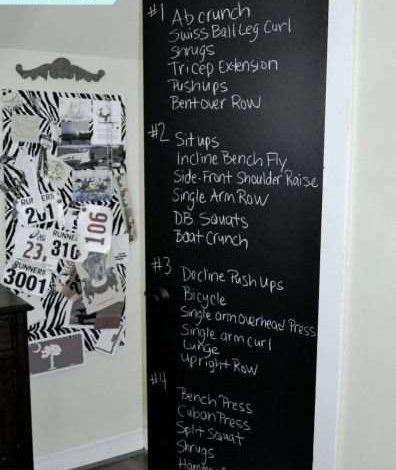 #1 Ab crunch
Swiss Ball Leg Curl
Shrugs
Tricep Extension
Pushups
Bentover Row
#2 Sit ups
Incline Bench Fly
Side-Front Shoulder Raise
Single Arm Row
DB Squats
Boat Crunch
#3 Decline Push Ups
Bicycle
Single arm overhead Press
Single arm curl
Lunge
Upright Row
#4 Bench Press
Cuban Press
Split Squat
Shrugs
201
106
23
310
RUNNERS
3001